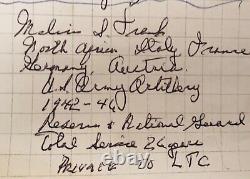 Melvin S. Frank
North Africa, Italy, France
Germany, Austria.
U.S Army Artillery
1942-46
Reserve & National Guard
Total Service 26 years
PRIVATE to LTC